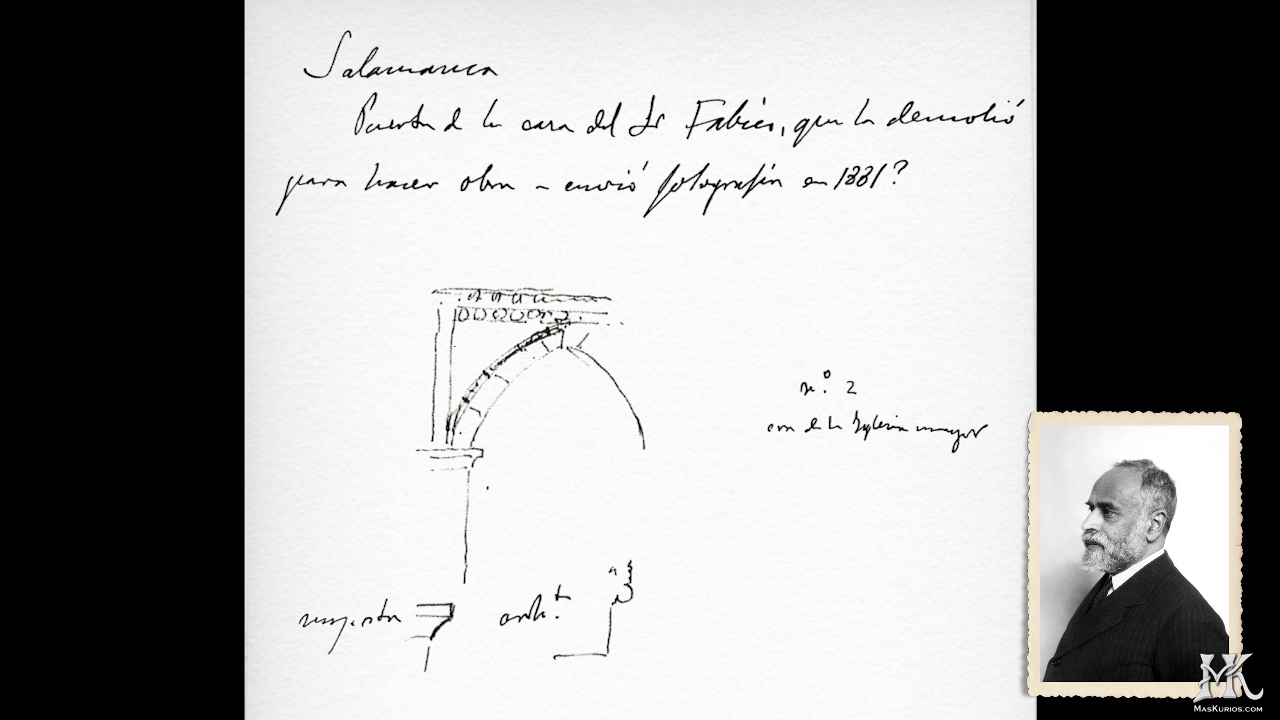 Salamanca
Puerta de la casa del Sr Fabiés, que la demolió
para hacer obra – envió fotografía en 1881?
n.º 2
era de la Iglesia mayor
imposta
MK
MasKurios.com